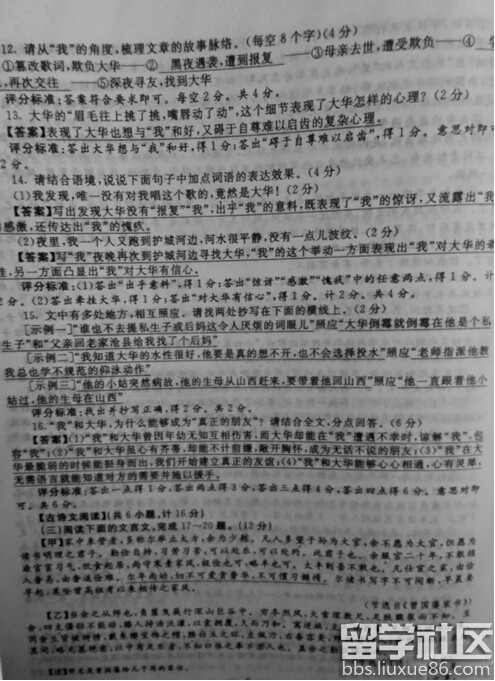 12. 请从“我”的角度,梳理文章的故事脉络。(每空8个字)(4分)
①篡改歌词,欺负大华——② 黑夜遇袭,遭到报复 ——③母亲去世,遭受欺负——④
,再次交往 ——⑤深夜寻友,找到大华
评分标准:答案符合要求即可。每空2分。共4分。
13. 大华的“眉毛往上挑了挑,嘴唇动了动”,这个细节表现了大华怎样的心理?(2分)
【答案】表现了大华也想与“我”和好,又碍于自尊难以启齿的复杂心理。
评分标准:答出大华想与“我”和好,得1分;答出“碍于自尊难以启齿”,得1分。意思对即可
2分。
14. 请结合语境,说说下面句子中加点词语的表达效果。(4分)
(1)我发现,唯一没有对我唱这个歌的,竟然是大华!(2分)
【答案】写出发现大华没有“报复”“我”,出乎“我”的意料,既表现了“我”的惊讶,又流露出“我
感激,还传达出“我”的愧疚。
(2)夜里,我一个人又跑到护城河边,河水很平静,没有一点儿波纹。(2分)
【答案】写“我”夜晚再次到护城河边寻找大华,“我”的这个举动一方面表现出“我”对大华的牵
挂,另一方面凸显出“我”对大华有信心。
评分标准:(1)答出“出乎意料”,得1分;答出“惊讶”“感激”“愧疚”中的任意两点,得1分。计
2分。(2)答出牵挂大华,得1分;答出“对大华有信心”,得1分。计2分。共4分。
15. 文中有多处地方,相互照应。请找两处抄写在下面的横线上。(2分)
[示例一]“谁也不去提私生子或后妈这令人厌烦的词眼儿”照应“大华倒霉就倒霉在他是个私
生子”和“父亲回老家沧县给我找了个后妈”
[示例二]“我知道大华的水性很好,他要是真的想不开,也不会选择投水”照应“老师指派他教
我总也学不规范的仰泳动作”
[示例三]“他的小姑突然病故,他的生母从山西赶来,要带着他回山西”照应“他一直跟着他小
姑过,他的生母在山西”
评分标准:找出并抄写正确,得2分。共2分。
16.“我”和大华,为什么能够成为“真正的朋友”?请结合全文,分点回答。(6分)
【答案】(1)“我”和大华曾因年幼无知互相伤害,而大华却能在“我”遭遇不幸时,谅解“我”,包
容“我”;(2)“我”和大华虽心有芥蒂,却能不计前嫌,敞开胸怀,成为无话不说的朋友;(3)“我”在大
华最脆弱的时候能挺身而出,我们开始建立真正的友谊;(4)“我”和大华能够心心相通,心有灵犀,
无需语言就能知道对方的需要并施以援手。
评分标准:答出一点得1分,答出两点得3分,答出三点得4分,答出四点得6分。意思对即
可。共6分。
【古诗文阅读】(共6小题,计16分)
(三)阅读下面的文言文,完成17~20题。(12分)
【甲】家中来营者,多称尔举止大方,余为少慰。凡人多望子孙为大官,余不愿为大官,但愿为
读书明理之君子。勤俭自持,习劳习苦,可以处乐,可以处约。此君子也。余服官二十年,不敢稍
染官宦习气,饮食起居,尚守寒素家风,极俭也可,略丰也可,太丰则吾不敢也。凡仕宦之家,由俭
入奢易,由奢返俭难。尔年尚幼,切不可贪爱奢华,不可惯习懒惰。
(节选自《曾国藩家书》)
留学社区
bbs.liuxue86.com